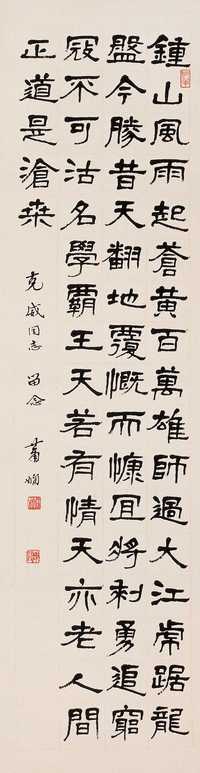 鍾山風雨起蒼黃百萬雄師過大江虎踞龍
盤今勝昔天翻地覆慨而慷宜將剩勇追窮
寇不可沽名學霸王天若有情天亦老人間
正道是滄桑
克威同志 留念 蕭嫻